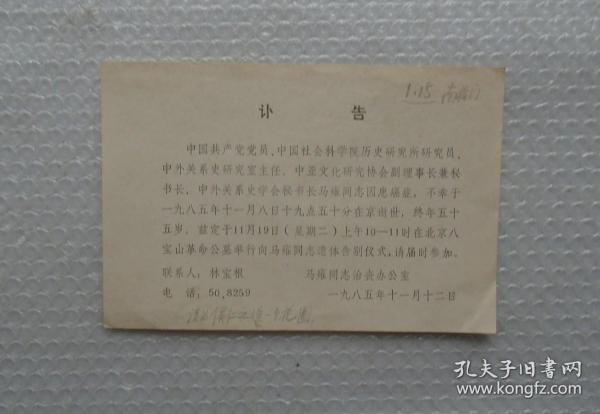 1.15
讣 告
中国共产党党员、中国社会科学院历史研究所研究员、
中外关系史研究室主任、中亚文化研究协会副理事长兼秘
书长、中外关系史学会秘书长马雍同志因患癌症，不幸于
一九八五年十一月八日十九点五十分在京逝世，终年五十
五岁。兹定于11月19日（星期二）上午10—11时在北京八
宝山革命公墓举行向马雍同志遗体告别仪式，请届时参加。
联系人：林宝根 马雍同志治丧办公室
电 话：50,8259 一九八五年十一月十二日
孔夫子旧书网
www.kongfz.com